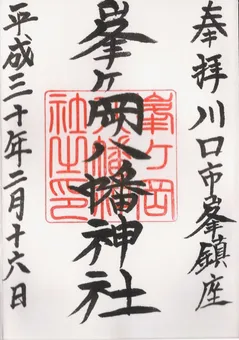 奉拝 川口市峯鎮座
峯ヶ岡八幡神社
峯ヶ岡
八幡神
社之印
平成三十年二月十六日